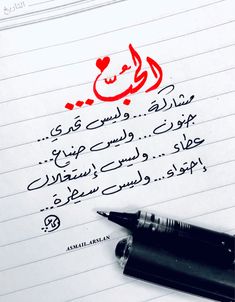 التاريخ
الحُبّ...
مشاركة... وليس تحدي...
جنون... وليس ضياع...
عطاء... وليس إستغلال
إحتواء... وليس سيطرة...
ASMAIL.ARSLAN